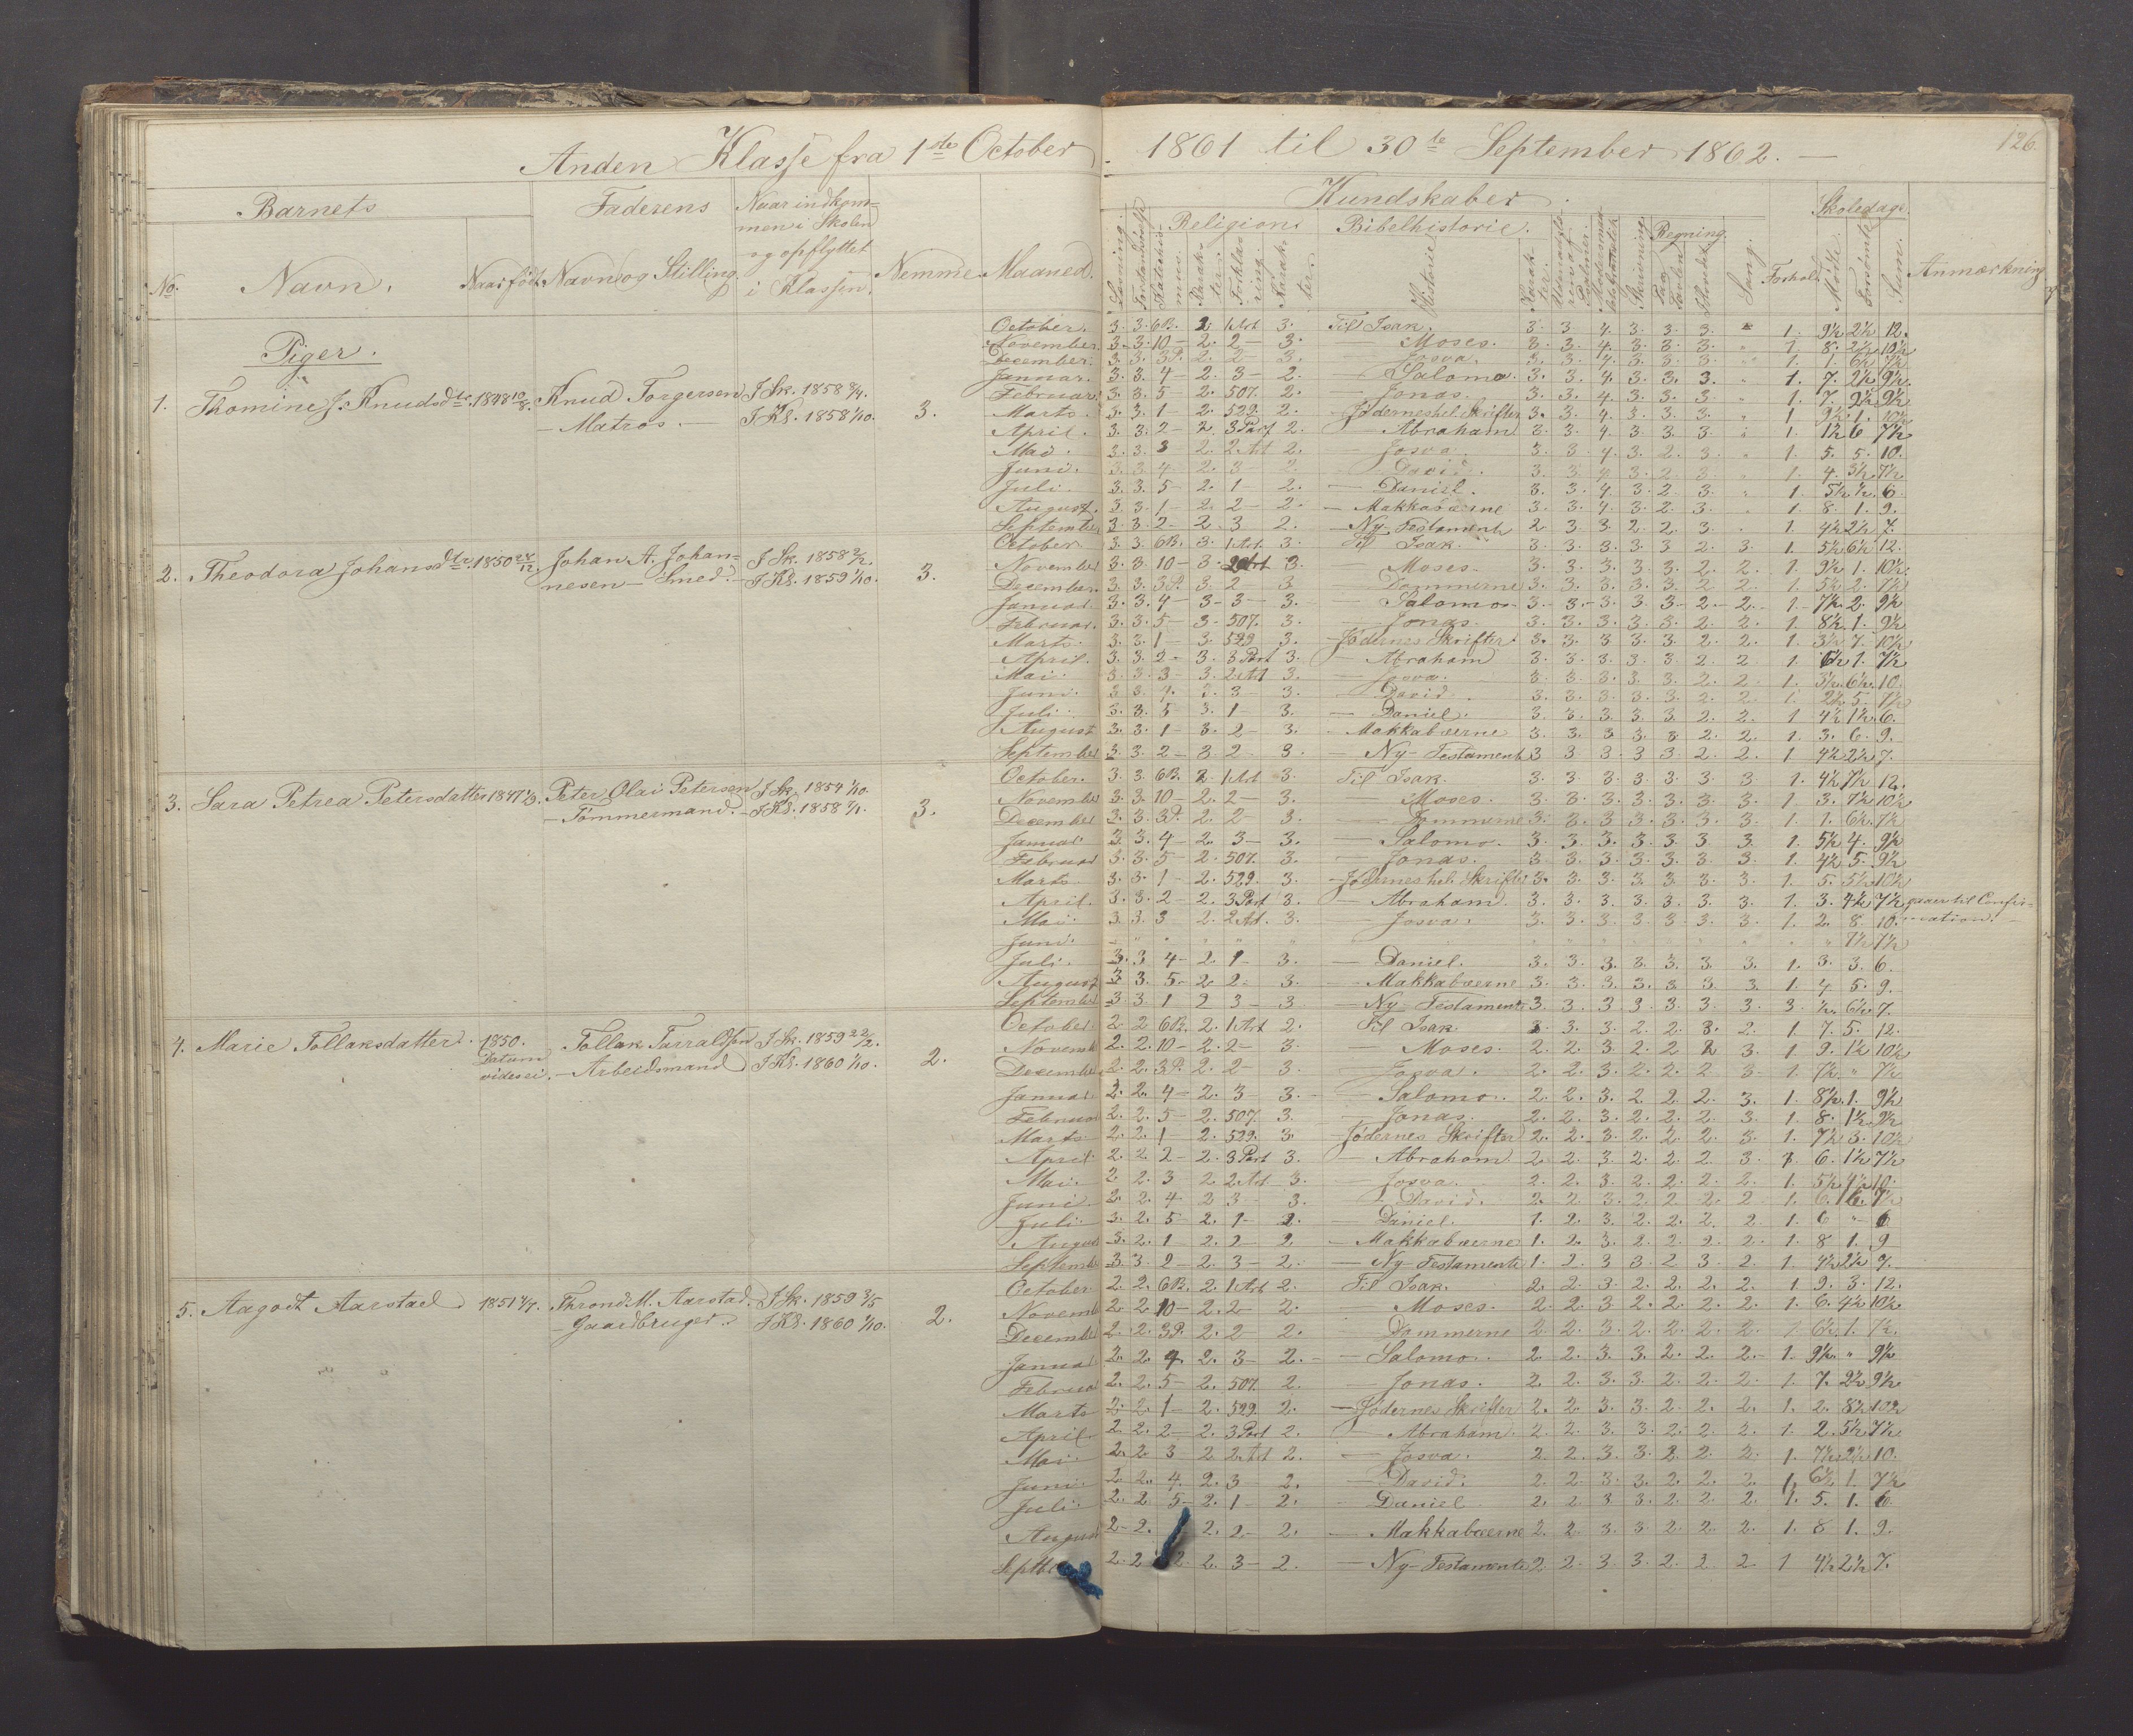 Anden Klasse fra 1ste October 1861 til 30te September 1862. —
126.
Barnets
Faderens
Naar indkom-
men i Skolen
og opflyttet
i Klassen.
No.
Navn.
Naar født.
Navn og Stilling.
Nemme.
Maaned.
Kundskaber.
Religion.
Bibelhistorie.
Regning.
Skoledage.
Læsning.
Forklaring.
Historie.
Skrivning
Sang.
Forhold.
Mødte.
Forsømte
Sum.
Anmærkning
Piger.
1. Thomine J. Knudsdtr. 1848 10/8. Knud Torgersen
— Matros. —
I Sk. 1858
I Kl. 1858 1/10.
3.
October. 3. 3. 6B. 2. 1 Art 3. Til Isak. 3. 3. 4. 3. 3. 3. " 1. 9½ 2½ 12.
November. 3. 3. 10 — 2. 2 — 3. — Moses. 3. 3. 4. 3. 3. 3. " 1. 8. 2½ 10½
December. 3. 3. 3P. 2. 2 — 3. — Josva. 3. 3. 4. 3. 3. 3. " 1. 1. 6½ 7½
Januar. 3. 3. 4 — 2. 3 — 2. — Salomo. 3. 3. 4. 3. 3. 3. " 1. 7. 2½ 9½.
Februar. 3. 3. 5 — 2. 507. 2. — Jonas. 3. 3. 4. 3. 3. 3. " 1. 7. 2½ 9½
Marts. 3. 3. 1 — 2. 529. 2. — Jødernes hel. Skrifter 3. 3. 4. 3. 3. 3. " 1 9½ 1. 10½
April. 3. 3. 2 — 2. 3 Part 2. — Abraham 3. 3. 4. 3. 3. 3. " 1. 1½ 6 7½
Mai. 3. 3. 3 2. 2 Art 2. — Josva. 3. 3. 4. 3. 2. 3. " 1. 5. 5. 10.
Juni. 3. 3. 4 — 2. 3 — 2. — David. 3. 3. 4. 3. 2. 3. " 1. 4. 3½ 7½
Juli. 3. 3. 5 — 2. 1 — 2. — Daniel. 3. 3. 4. 3. 2. 3. " 1. 5½ ½. 6.
August. 3. 3. 1 — 2. 2 — 2. — Makkabæerne 3. 3. 4. 3. 2. 3. " 1. 8. 1. 9.
September 3. 3. 2 — 2. 3 2. — Ny-Testament 2. 3. 3. 2. 2. 3. " 1. 4½ 2½ 7.
2. Theodora Johansdtr. 1850 28/12. Johan A. Johan-
nesen — Smed. —
I Sk. 1858 2/2.
I Kl. 1859 1/10.
3.
October. 3. 3. 6B. 3. 1 Art. 3. Til Isak. 3. 3. 3. 3. 3 2. 3. 1. 5½ 6½ 12.
November 3. 3. 10 — 3. 2 Art 3. — Moses. 3. 3. 3. 3. 3. 2. 2. 1. 9½ 1. 10½.
December. 3. 3. 3P. 3. 2 — 3 — Dommerne 3. 3. 3. 3. 3. 2 2. 1. 5½ 2. 7½
Januar. 3. 3. 4 — 3 — 3 — 3. — Salomo. 3. 3. 3. 3. 3. 2. 2. 1. 7½. 2. 9½
Februar. 3. 3. 5 — 3. 507. 3. — Jonas. 3. 3. 3. 3. 3. 2. 2. 1. 8½. 1. 9½
Marts. 3. 3. 1 — 3. 529 3. — Jødernes Skrifter. 3. 3. 3. 3. 3. 2. 2. 1. 3½ 7. 10½
April. 3. 3. 2 — 3. 3 Part 3. — Abraham 3. 3. 3. 3. 3 2. 2 1. 6½ 1. 7½
Mai. 3. 3. 3 — 3. 2 Art 3. — Josva. 3. 3. 3. 3. 3. 2. 2. 1. 3½. 6½. 10.
Juni. 3 3. 4. 3. 3 — 3. — David. 3. 3. 3. 3. 3. 2. 2. 1. 2½ 5. 7½
Juli. 3. 3. 5 — 3. 1 — 3. — Daniel. 3. 3. 3. 3. 3. 2. 2. 1. 4½ 1½. 6.
August 3. 3. 1 — 3. 2 — 3. — Makkabæerne 3. 3. 3. 3. 3. 2. 2. 1. 3. 6. 9.
September 3. 3. 2 — 3 2 — 3. — Ny-Testament 3 3 3 3. 3 2. 2 1 4½ 2½ 7.
3. Sara Petrea Petersdatter 1847 1/9. Peter Olai Petersen
— Tømmermand. —
I Sk. 1854 1/10.
I Kl. 1858
3.
October. 3. 3. 6B. 2. 1 Art 3. Til Isak. 3. 3. 3. 3. 3. 3. 3 1. 4½ 7½ 12.
November 3. 3. 10 — 2. 2 — 3. — Moses. 3. 3. 3. 3. 3. 3. 3. 1. 3. 7½ 10½
December 3. 3. 3P. 2. 2 — 3. — Dommerne 3. 3. 3. 3. 3. 3. 3. 1. 1. 6½. 7½
Januar 3. 3. 4 — 2. 3 — 3. — Salomo. 3. 3. 3. 3. 3. 3 3. 1. 5½ 4. 9½
Februar 3. 3. 5 — 2. 507. 3. — Jonas. 3 3. 3. 3. 3. 3. 3. 1. 4½ 5. 9½
Marts 3. 3. 1 — 2. 529. 3. — Jødernes hel. Skrifter 3. 3. 3. 3. 3. 3. 3. 1. 5. 5½ 10½
April. 3. 3. 2 — 2. 3 Part 3. — Abraham. 3. 3. 3. 3. 3. 3. 3. 1. 3. 4½ 7½ gaaer til Confir-
Mai 3. 3. 3 2. 2 Art. 3. — Josva. 3. 3. 3. 3. 3. 3. 3. 1. 2. 8. 10. mation. —
Juni. " " " " " " " " " " " " " " " 7½ 7½
Juli. 3. 3 4 — 2. 1 — 3. — Daniel. 3. 3. 3. 3. 3. 3. 3. 1. 3. 3. 6.
August 3 3. 5. — 2. 2. — 3. — Makkabæerne 3. 3. 3. 3. 3 3. 3. 1. 4 5. 9.
September 3 3 1 2 3 — 3 — Ny-Testament 3. 3. 3 3. 3. 3. 3 3. ½. 6½. 7.
4. Marie Tollaksdatter. 1850.
Datum
vides ei.
Tollak Tarraldsen
— Arbeidsmand
I Sk. 1859 22/2.
I Kl. 1860 1/10.
2.
October 2 2 6B. 2. 1 Art 2. Til Isak. 3. 3. 3. 2. 2. 3. 2. 1 7. 5. 12.
Novemb 2. 2. 10 — 2. 2 — 3. — Moses. 2. 2. 3. 2. 2 2 3. 1 9. 1½ 10½
December 2. 2. 3P. 2. 2 — 3. — Josva. 2. 2. 3. 2. 2. 2 3. 1. 7½ " 7½
Januar 2. 2. 4 — 2. 3 — 3. — Salomo. 2. 2. 3. 2 2. 2. 3. 1. 8½. 1. 9½
Februar 2. 2. 5 — 2. 507. 3. — Jonas. 2. 2. 3. 2. 2. 2. 3. 1. 8. 1½. 9½
Marts 2. 2. 1 — 2. 529. 3. — Jødernes Skrifter 2. 2. 3. 2. 2. 2. 3. 1. 7½ 3. 10½
April 2. 2. 2 — 2. 3 Part 3. — Abraham 2. 2. 3. 2. 2. 2. 3. 1. 6. 1½ 7½
Mai. 2 2. 3 2. 2 Art 3. — Josva. 2. 2. 3. 2. 2. 2. 2. 1. 5½ 4½ 10.
Juni. 2. 2. 4 2 3 — 3. — David. 2. 2. 3. 2. 2. 2. 2 1. 6. 7½
Juli. 3. 2. 5 — 2. 1 — 2. — Daniel. 1. 2. 3. 2. 2. 2. 2. 1. 6 " 6
August 3. 2. 1 — 2. 2 — 2. — Makkabæerne 1. 2. 3. 2. 2. 2. 2. 1. 8 1. 9
Septemb 3. 3. 2 — 2. 3 — 2. — Ny-Testamente 1. 2. 3 3. 2. 3 2. 1. 4½ 2½ 7.
5. Aagodt Aarstad. 1851 Thrond M. Aarstad.
— Gaardbruger.
I Sk. 1859 3/5
I Kl. 1860 1/10.
2.
October 2. 2. 6B. 2. 1 Art 2. Til Isak. 2. 2. 3. 2. 2. 2. 2. 1 9. 3. 12.
Novemb 2. 2. 10 — 2. 2 — 2. — Moses. 2. 2. 3 2. 2. 2. 2. 1. 6. 4½ 10½
December 2. 2. 3P. 2. 2 — 2. — Dommerne 2. 2. 3. 2. 2. 2. 2. 1. 6½. 1. 7½.
Januar 2. 2. 4. 2. 3 — 2. — Salomo. 2. 2. 3. 3. 2. 2. 2. 1. 9½. " 9½
Februar 2. 2. 5 — 2. 507. 2. — Jonas. 2. 2. 3. 3. 2. 2. 2. 1. 7. 2½ 9½.
Marts 2. 2. 1 — 2. 529. 2. — Jødernes Skrifter 2. 2. 3. 3. 2. 2. 2. 1. 2. 8½ 10½
April 2. 2. 2 — 2. 3 Part 2. — Abraham. 2. 2. 3. 3. 2. 2. 2. 1. 2. 5½ 7½.
Mai 2. 2. 3 2. 2 Art 2. — Josva. 2. 2. 3. 3. 2. 2. 2. 1. 7½ 2½ 10.
Juni. 2 2. 4. 2. 3 — 2. — David. 2. 2. 3. 3. 2. 2. 2. 1. 6½. 1. 7½
Juli. 2. 2 5 — 2. 1 — 2. — Daniel 2. 2. 3. 3. 2. 2. 2. 1. 5. 1. 6.
August 2 2. 2. 2 — 2. — Makkabæerne 2. 2. 3. 3. 2. 2. 2. 1. 8 1. 9.
Septb 2. 2 2 2. 3 — 2. — Ny-Testamente 2. 2. 3 3. 2. 2. 2 1 4½ 2½ 7.